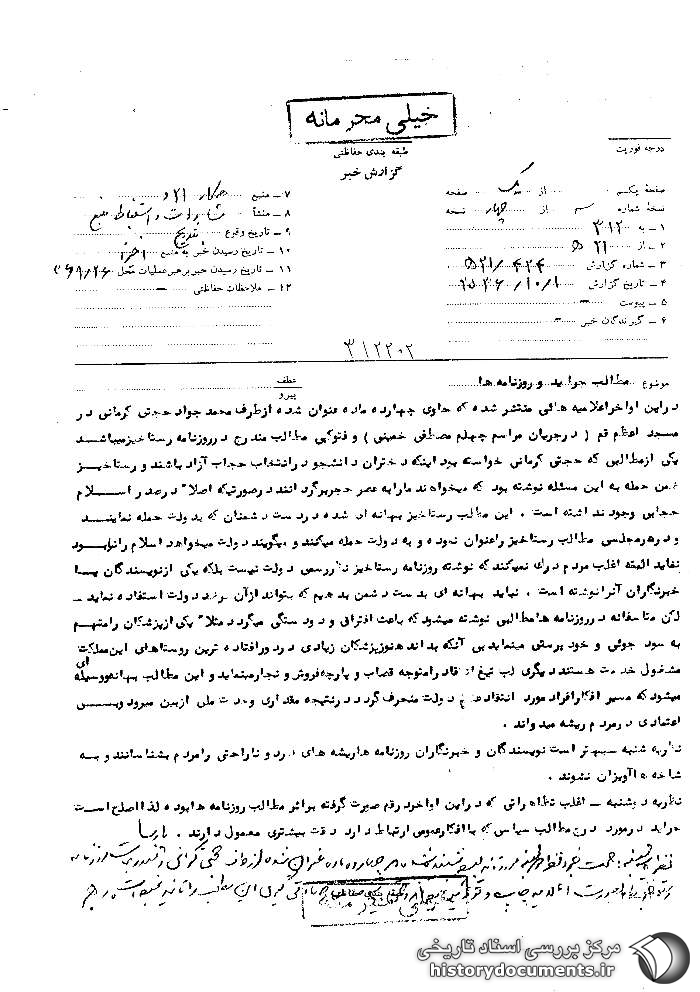 خیلی محرمانه
طبقه بندی حفاظتی
درجه فوریت
گزارش خبر
صفحه یکم از یک صفحه
نسخه شماره سه از چهار نسخه
۱ـ به ۳۱۲
۲ـ از ۲۱ ه‍
۳ـ شماره گزارش ۴۲۴/۵۲۱
۴ـ تاریخ گزارش ۲۵۳۶/۱۰/۱
۵ـ پیوست ـ
۶ـ گیرندگان خبر ـ
۷ـ منبع همکار ۲۱ و
۸ـ منشأ مشاهدات و استنباط منبع
۹ـ تاریخ وقوع بتدریج
۱۰ـ تاریخ رسیدن خبر به منبع
۱۱ـ تاریخ رسیدن خبر برهبر عملیات محل
۱۲ـ ملاحظات حفاظتی ـ
۳۱۲۲۰۲
موضوع مطالب جراید و روزنامه ها
عطف
پیرو
دراین اواخراعلامیه هائی منتشر شده که حاوی چهارده ماده عنوان شده ازطرف محمد جواد حجتی کرمانی در
مسجد اعظم قم ( درجریان مراسم چهلم مصطفی خمینی ) و فتوکپی مطالب مندرج درروزنامه رستاخیزمیباشد
یکی ازمطالبی که حجتی کرمانی خواسته بود اینکه دختران دانشجو درانتخاب حجاب آزاد باشند و رستاخیز
ضمن حمله به این مسئله نوشته بود که میخواهند مارابه عصر حجربرگردانند درصورتیکه اصلا" درصدر اسلام
حجابی وجود نداشته است . این مطالب رستاخیز بهانه ای شده دردست دشمنان که بدولت حمله نمایند
و درهرمجلسی مطالب رستاخیز راعنوان نموده و به دولت حمله میکنند و میگویند دولت میخواهد اسلام رانابود
نماید البته اغلب مردم درک نمیکنند که نوشته روزنامه رستاخیز نظررسمی دولت نیست بلکه یکی ازنویسندگان یا
خبرنگاران آنرانوشته است . نباید بهانه ای بدست دشمن بدهیم که بتواند ازآن برضد دولت استفاده نماید ـ
لکن متاسفانه درروزنامه هامطالبی نوشته میشود که باعث افتراق و دودستگی میگردد مثلا" یکی ازپزشکان رامتهم
به سود جوئی و خود پرستی مینماید بی آنکه بداند هنوزپزشکان زیادی دردورافتاده ترین روستاهای این مملکت
مشغول خدمت هستند دیگری لب تیغ انتقادرامتوجه قصاب و پارچه فروش و نجارمینماید و این مطالب بهانه ووسیله ای
میشود که مسیر افکارافراد مورد انتقاد بدولت منحرف گردد درنتیجه مقداری وحدت ملی ازبین میرود وبی
اعتمادی درمردم ریشه میدواند .
نظریه شنبه ـ بهتر است نویسندگان و خبرنگاران روزنامه هاریشه های درد و ناراحتی رامردم بشناسانند و به
شاخه ها آویزان نشوند .
نظریه دوشنبه ـ اغلب تظاهراتی که دراین اواخردر قم صورت گرفته براثر مطالب روزنامه هابوده لذا اصلح است
جراید درمورد درج مطالب سیاسی که باافکارعمومی ارتباط دارد دقت بیشتری معمول دارند . پارسا
خیلی محرمانه
مرکز بررسی اسناد تاریخی
historydocuments.ir